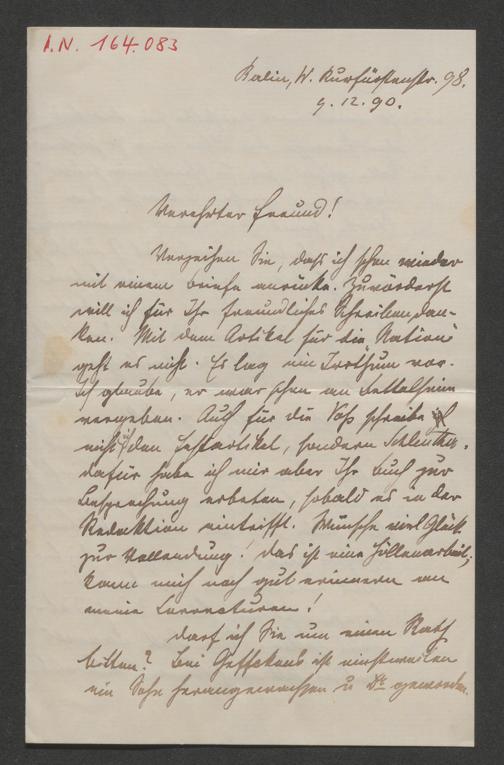 I.N. 164.083
Berlin, W. Kurfürstenstr. 98.
9.12.90.
Verehrter Freund!
Verzeihen Sie, daß ich schon wieder
mit einem Briefe anrücke. Zuvörderst
will ich für Ihr freundliches Schreiben dan-
ken. Mit dem Artikel für die Nation
geht es nicht. Es lag ein Irrthum vor.
Ich glaube, er war schon an Bettelheim
vergeben. Auch für die Voß schreibe
nicht ich den Festartikel, sondern Schlenther.
Dafür habe ich mir aber Ihr Buch zur
Besprechung erbeten, sobald es in der
Redaktion eintrifft. Wünsche viel Glück
zur Vollendung! Das ist eine Höllenarbeit;
kann mich noch gut erinnern an
meine Correcturen!
Darf ich Sie um einen Rath
bitten? Bei Geffckens ist einstweilen
ein Sohn herangewachsen u Dr geworden.